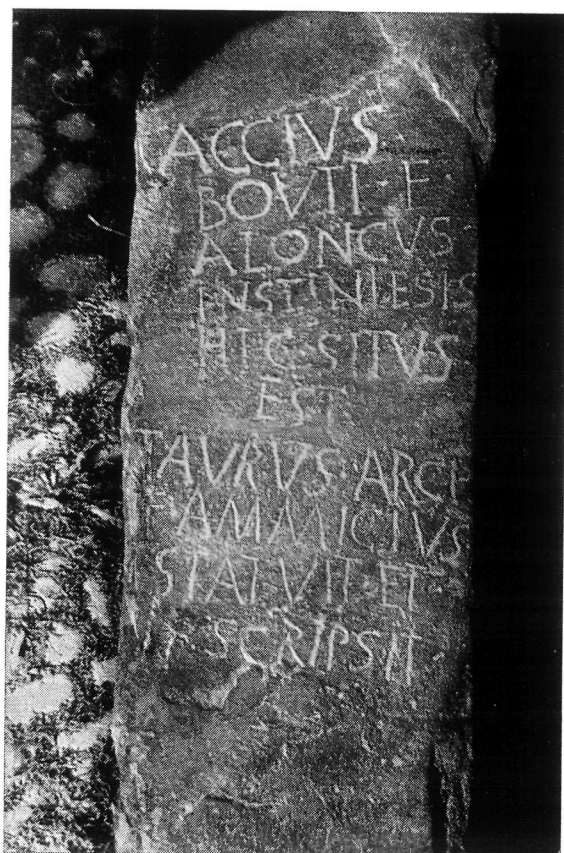 ACCIVS
BOVTI · F ·
ALONCVS ·
INSTINIESIS
HIC · SITVS
EST
TAVRVS · ARCI
F AMMICIVS
STATVIT · ET
SCRIPSIT